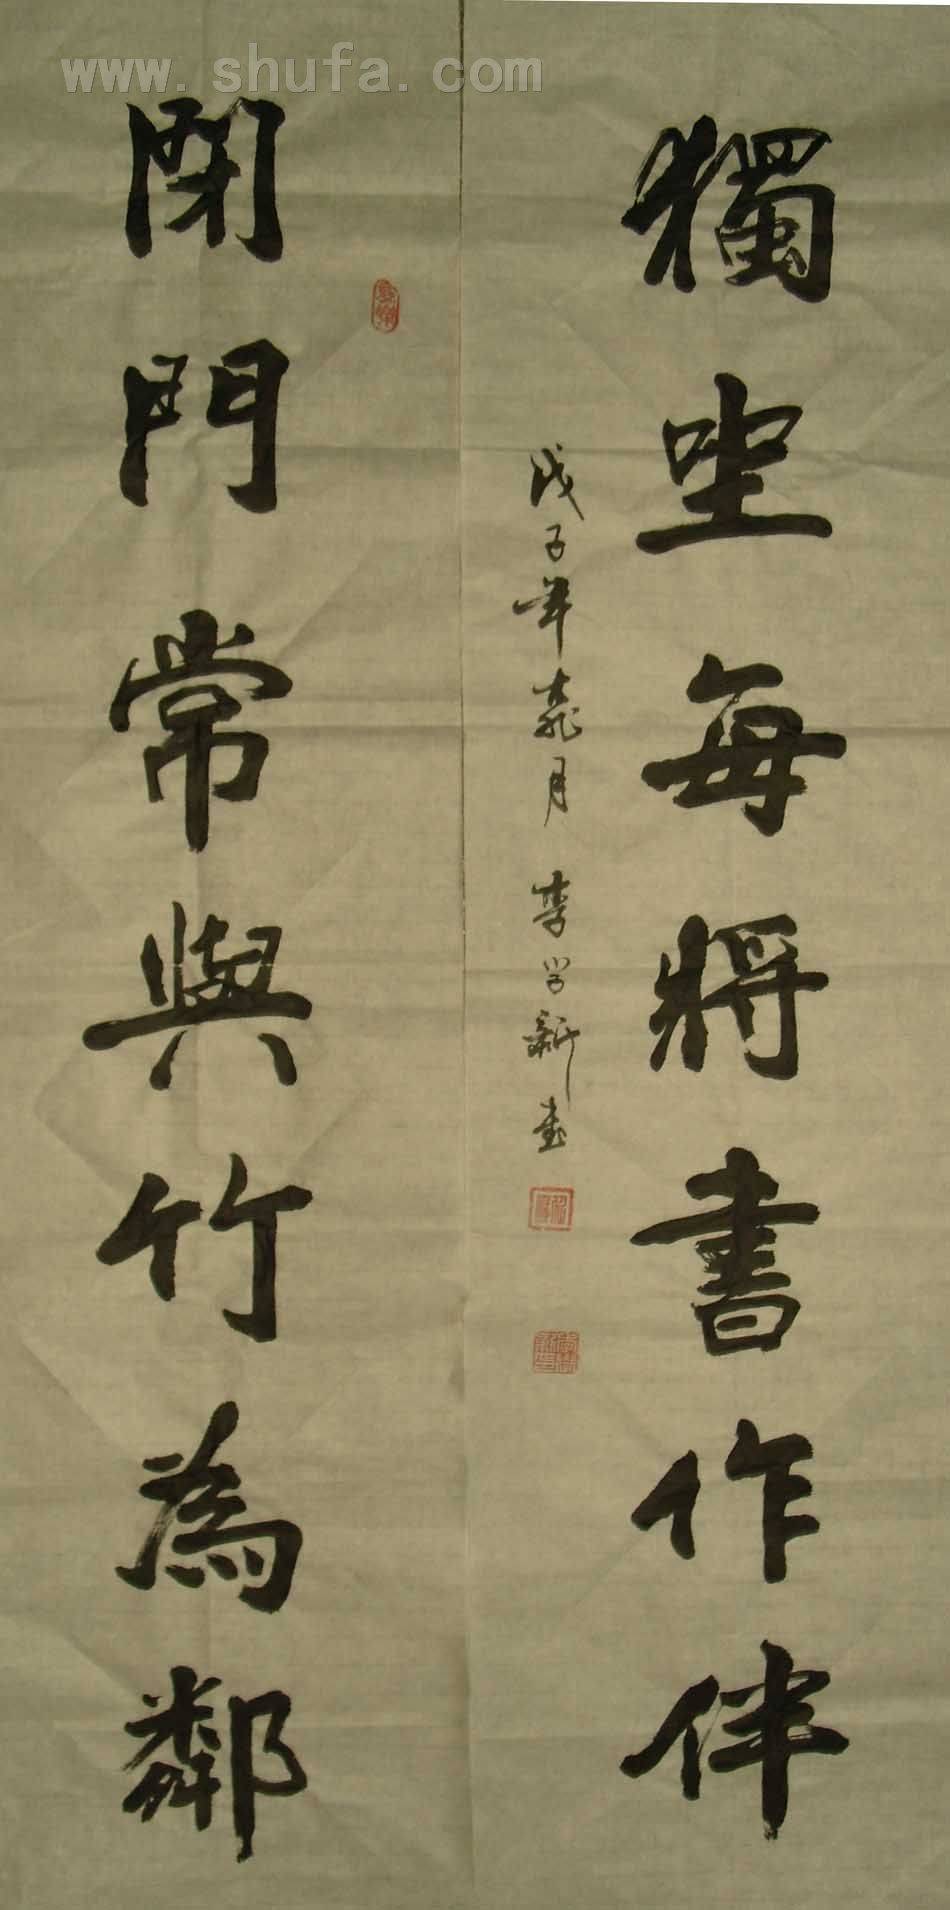 www.shufa.com
獨坐每將書作伴
戊子年桃月 李学新書
閉門常與竹為鄰